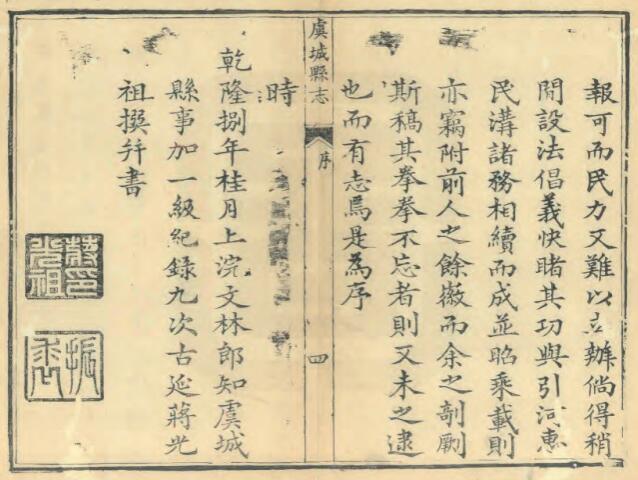 報可而民力又難以立辦倘得稍
閒設法倡義快睹其功與引河惠
民溝諸務相續而成並昭乘載則
亦竊附前人之餘徽而余之剞劂
斯稿其拳拳不忘者則又未之逮
也而有志焉是為序
虞城縣志
序
四
時
乾隆捌年桂月上浣文林郎知虞城
縣事加一級紀錄九次古延蔣光
祖撰并書
蔣光祖印